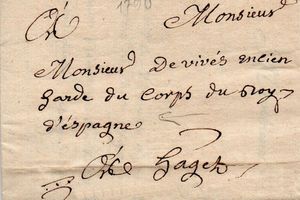 1790
A Monsieur
Monsieur De vivés encien
garde du Corps du Roy
d'éspagne
A hagets